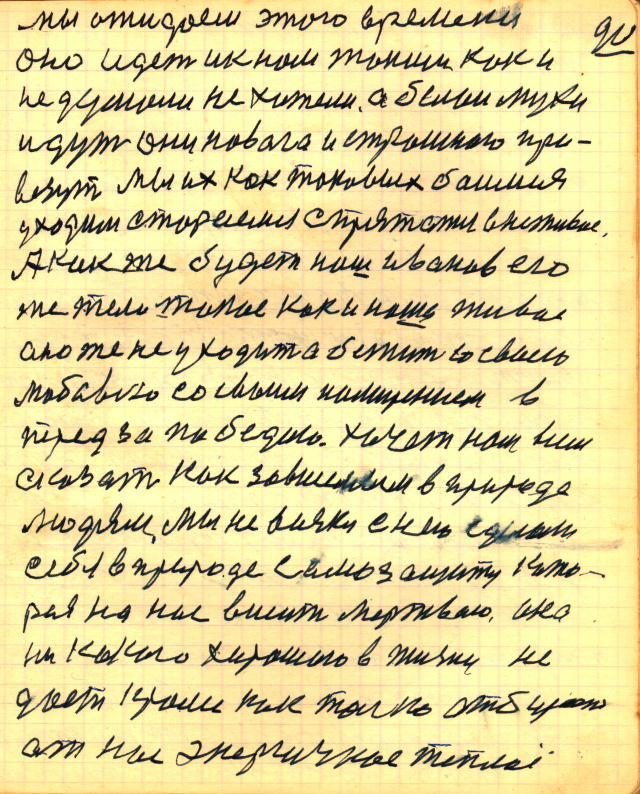 мы ожидаем этого времени 90
оно идет и к нам таким, как и
не думали не хотели. а белаи мухи
идут они новага и страшного при-
везут мы их как таковых баимся
уходим стареимся спрятатся в неживое.
А как же будет наш Иванов его
же тело такое как и наше живое
оно же не уходит а бежит со своею
любовью со своим намерением в
перед за победою. хочет нам всем
сказать как зависимым в природе
людям, мы не в язки с нею сделали
себя в природе самозащиту като-
рая на нас висит мертваю. она
ни какого харошаго в жизни не
даст кроме как толко отбирает
от нас энергичное теплаё